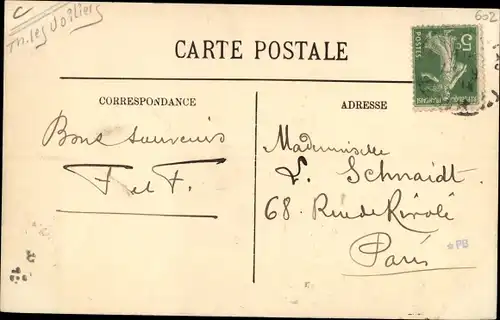 Th. les Voiliers
602
CARTE POSTALE
5c
POSTES
REPUBLIQUE FRANÇAISE
CORRESPONDANCE
ADRESSE
Bons souvenirs
F et F.
Mademoiselle
L. Schmidt.
68 Rue de Rivoli
Paris
*PB